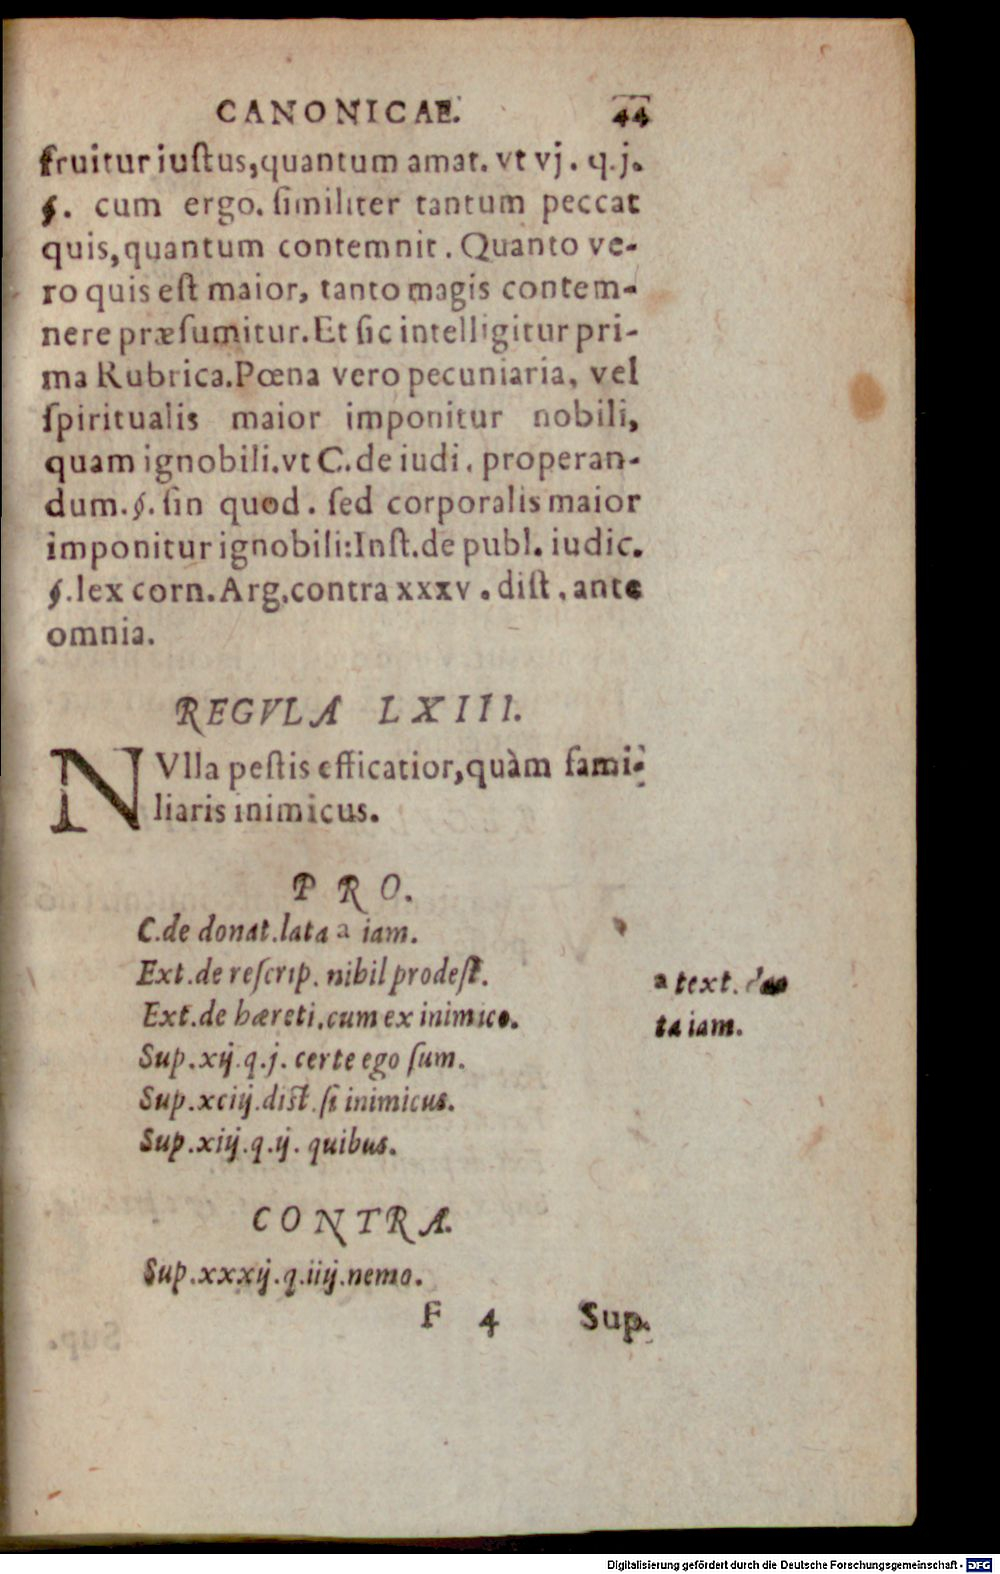 CANONICAE. 44
fruitur iuſtus,quantum amat. vt vj. q.j.
§. cum ergo. ſimiliter tantum peccat
quis,quantum contemnit. Quanto ve-
ro quis eſt maior, tanto magis contem-
nere præſumitur.Et ſic intelligitur pri-
ma Rubrica.Pœna vero pecuniaria, vel
ſpiritualis maior imponitur nobili,
quam ignobili.vt C.de iudi. properan-
dum.§. ſin quod. ſed corporalis maior
imponitur ignobili:Inſt.de publ. iudic.
§.lex corn.Arg.contra xxxv. diſt. ante
omnia.
REGVLA LXIII.
NVlla peſtis efficatior,quàm fami-
liaris inimicus.
PRO.
C.de donat.lata a iam.
Ext.de reſcrip. nihil prodeſt.
a text.
Ext.de hæreti.cum ex inimico.
ta iam.
Sup.xij.q.j. certe ego ſum.
Sup.xciij.diſt.ſi inimicus.
Sup.xiij.q.ij. quibus.
CONTRA.
Sup.xxxij.q.iiij.nemo.
F 4 Sup.
Digitalisierung gefördert durch die Deutsche Forschungsgemeinschaft - DFG